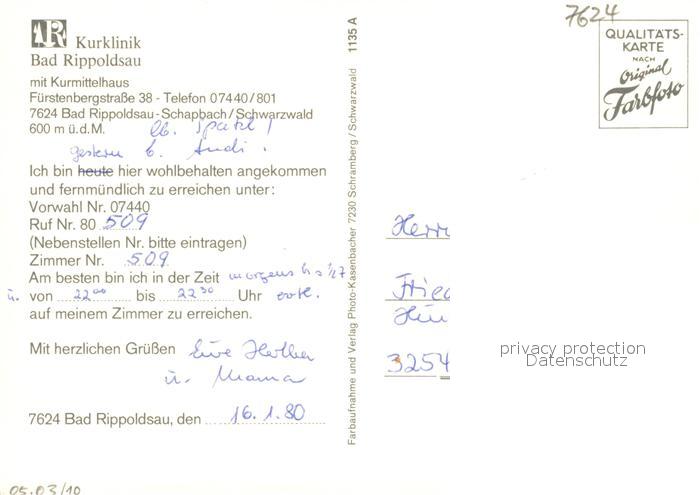 7624
QUALITÄTS-
KARTE
NACH
Original
Farbfoto
R Kurklinik
Bad Rippoldsau
mit Kurmittelhaus
Fürstenbergstraße 38 - Telefon 07440/801
7624 Bad Rippoldsau-Schapbach/Schwarzwald
600 m ü.d.M.
lb. Spatzl
gestern b. Andi.
Ich bin heute hier wohlbehalten angekommen
und fernmündlich zu erreichen unter:
Vorwahl Nr. 07440
Ruf Nr. 80 509
(Nebenstellen Nr. bitte eintragen)
Zimmer Nr. 509
Am besten bin ich in der Zeit morgens bis 1/2 7
u. von 22 00 bis 22 30 Uhr
auf meinem Zimmer zu erreichen.
Mit herzlichen Grüßen Eure
u. Mama
7624 Bad Rippoldsau, den 16.1.80
05.03/10
Farbaufnahme und Verlag Photo-Kasenbacher 7230 Schramberg/Schwarzwald 1135 A
Herrn
Fried
3254
privacy protection
Datenschutz